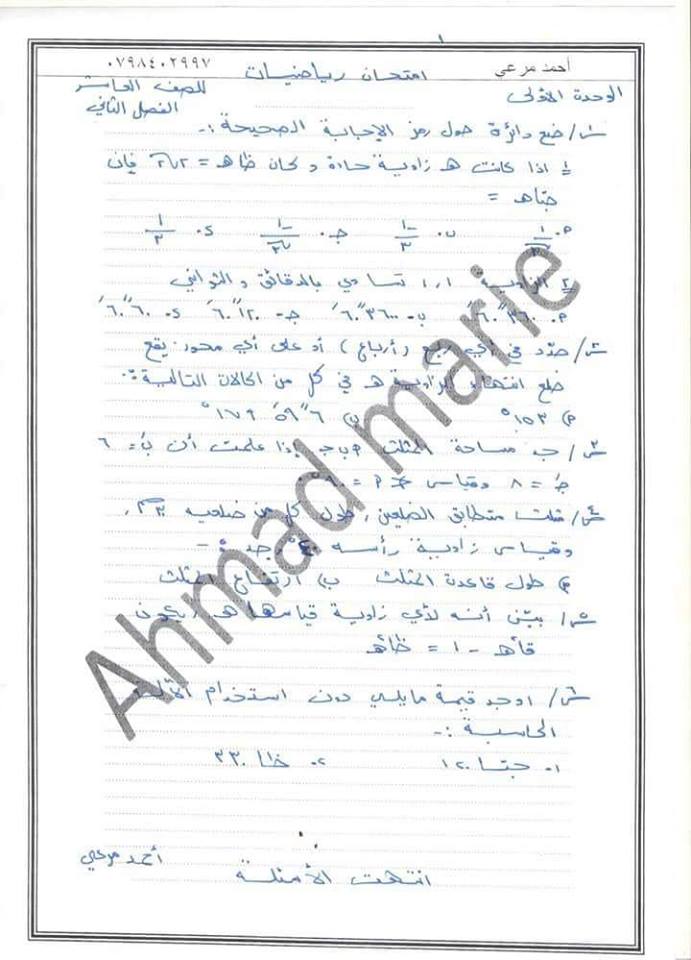 أحمد مرعي امتحان رياضيات ٠٧٩٨٤٠٢٩٩٧
الوحدة الاولى للصف العاشر
الفصل الثاني
س/ ضع دائرة حول رمز الإجابة الصحيحة :-
١/ اذا كانت هـ زاوية حادة و كان ظاهـ = ٢√٢ فإن
جتاهـ =
ب. -١/٣ د. ١/٣
٢/ الزاوية ١,١ تساوي بالدقائق والثواني
ب- ٣٦٠٠ً ٦٠َ جـ- ١٢٠ً ٦٠َ د. ٦٠ً ٦٠َ
س/ حدّد في أي ربع (أرباع) أو على أي محور يقع
ضلع انتهاء الزاوية هـ في كل من الحالات التالية:
أ) ١٥٣° ب) ٦ً ٥٩َ ١٧٩°
س/ جد مساحة المثلث أ ب جـ إذا علمت أن بَ = ٦
جـَ = ٨ وقياس أ =
س/ مثلث متطابق الضلعين، طول كل من ضلعيه ٣م،
وقياس زاوية رأسه جد :-
أ) طول قاعدة المثلث ب) ارتفاع المثلث
س/ بيّن أنه لأي زاوية قياسها هـ، يكون
قا²هـ - ١ = ظا²هـ
س/ اوجد قيمة مايلي دون استخدام الآلة
الحاسبة :-
١. جتا١٢٠ ٢. ظا٣٣٠
انتهت الأمثلة أحمد مرعي
Ahmad marie